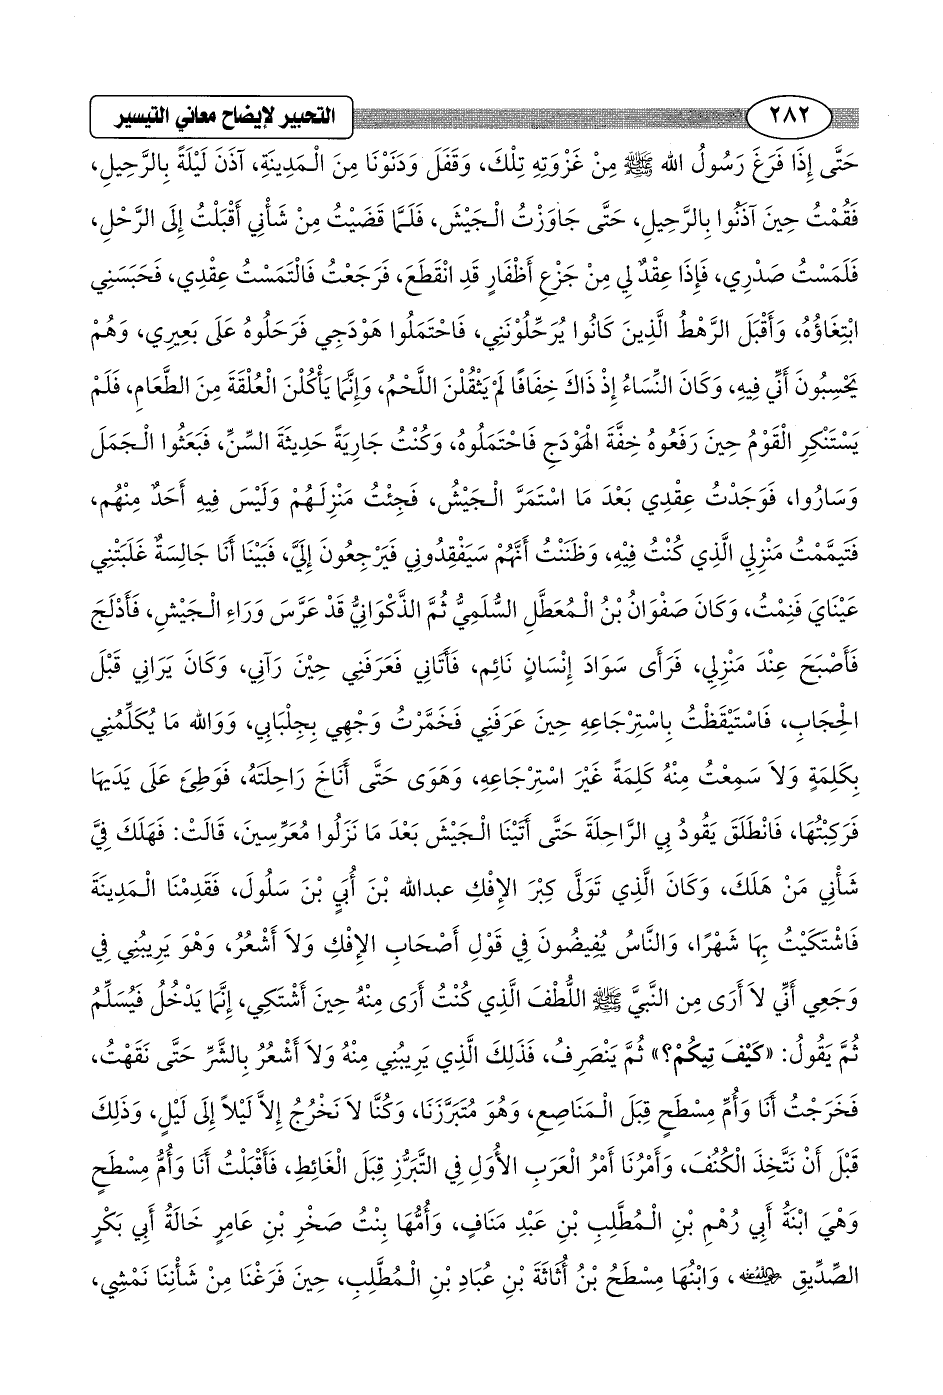 ٢٨٢ التحبير لإيضاح معاني التيسير
حَتَّى إِذَا فَرَغَ رَسُولُ الله ﷺ مِنْ غَزْوَتِهِ تِلْكَ، وَقَفَلَ وَدَنَوْنَا مِنَ الْمَدِينَةِ، آذَنَ لَيْلَةً بِالرَّحِيلِ،
فَقُمْتُ حِينَ آذَنُوا بِالرَّحِيلِ، حَتَّى جَاوَزْتُ الْجَيْشَ، فَلَمَّا قَضَيْتُ مِنْ شَأْنِي أَقْبَلْتُ إِلَى الرَّحْلِ،
فَلَمَسْتُ صَدْرِي، فَإِذَا عِقْدٌ لِي مِنْ جَزْعِ أَظْفَارٍ قَدِ انْقَطَعَ، فَرَجَعْتُ فَالْتَمَسْتُ عِقْدِي، فَحَبَسَنِي
ابْتِغَاؤُهُ، وَأَقْبَلَ الرَّهْطُ الَّذِينَ كَانُوا يُرَحِّلُونَنِي، فَاحْتَمَلُوا هَوْدَجِي فَرَحَلُوهُ عَلَى بَعِيرِي، وَهُمْ
يَحْسِبُونَ أَنِّي فِيهِ، وَكَانَ النِّسَاءُ إِذْ ذَاكَ خِفَافًا لَمْ يَثْقُلْنَ اللَّحْمُ، وَإِنَّمَا يَأْكُلْنَ الْعُلْقَةَ مِنَ الطَّعَامِ، فَلَمْ
يَسْتَنْكِرِ الْقَوْمُ حِينَ رَفَعُوهُ خِفَّةَ الْهَوْدَجِ فَاحْتَمَلُوهُ، وَكُنْتُ جَارِيَةً حَدِيثَةَ السِّنِّ، فَبَعَثُوا الْجَمَلَ
وَسَارُوا، فَوَجَدْتُ عِقْدِي بَعْدَ مَا اسْتَمَرَّ الْجَيْشُ، فَجِئْتُ مَنْزِلَهُمْ وَلَيْسَ فِيهِ أَحَدٌ مِنْهُم،
فَتَيَمَّمْتُ مَنْزِلِي الَّذِي كُنْتُ فِيْهِ، وَظَنَنْتُ أَنَّهُمْ سَيَفْقِدُونِي فَيَرْجِعُونَ إِلَيَّ، فَبَيْنَا أَنَا جَالِسَةٌ غَلَبَتْنِي
عَيْنَايَ فَنِمْتُ، وَكَانَ صَفْوَانُ بْنُ الْمُعَطَّلِ السُّلَمِيُّ ثُمَّ الذَّكْوَانِيُّ قَدْ عَرَّسَ وَرَاءِ الْجَيْشِ، فَأَدْلَجَ
فَأَصْبَحَ عِنْدَ مَنْزِلِي، فَرَأَى سَوَادَ إِنْسَانٍ نَائِمٍ، فَأَتَانِي فَعَرَفَنِي حِيْنَ رَآنِي، وَكَانَ يَرَانِي قَبْلَ
الْحِجَابِ، فَاسْتَيْقَظْتُ بِاسْتِرْجَاعِهِ حِينَ عَرَفَنِي فَخَمَّرْتُ وَجْهِي بِجِلْبَابِي، وَوَالله مَا يُكَلِّمُنِي
بِكَلِمَةٍ وَلاَ سَمِعْتُ مِنْهُ كَلِمَةً غَيْرَ اسْتِرْجَاعِهِ، وَهَوَى حَتَّى أَنَاخَ رَاحِلَتَهُ، فَوَطِئَ عَلَى يَدَيهَا
فَرَكِبْتُهَا، فَانْطَلَقَ يَقُودُ بِي الرَّاحِلَةَ حَتَّى أَتَيْنَا الْجَيْشَ بَعْدَ مَا نَزَلُوا مُعَرِّسِينَ، قَالَتْ: فَهَلَكَ فِيَّ
شَأْنِي مَنْ هَلَكَ، وَكَانَ الَّذِي تَوَلَّى كِبْرَ الإِفْكِ عبدالله بْنَ أُبَيٍ بْنَ سَلُولَ، فَقَدِمْنَا الْمَدِينَةَ
فَاشْتَكَيْتُ بِهَا شَهْرًا، وَالنَّاسُ يُفِيضُونَ فِي قَوْلِ أَصْحَابِ الإِفْكِ وَلاَ أَشْعُرُ، وَهْوَ يَرِيبُنِي فِي
وَجَعِي أَنِّي لاَ أَرَى مِن النَّبِيَّ ﷺ اللُّطْفَ الَّذِي كُنْتُ أَرَى مِنْهُ حِينَ أَشْتَكِي، إِنَّمَا يَدْخُلُ فَيُسَلِّمُ
ثُمَّ يَقُولُ: «كَيْفَ تِيكُمْ؟» ثُمَّ يَنْصَرِفُ، فَذَلِكَ الَّذِي يَرِيبُنِي مِنْهُ وَلاَ أَشْعُرُ بِالشَّرِّ حَتَّى نَقَهْتُ،
فَخَرَجْتُ أَنَا وَأُمِّ مِسْطَحٍ قِبَلَ الْمَنَاصِعِ، وَهُوَ مُتَبَرَّزَنَا، وَكُنَّا لاَ نَخْرُجُ إِلاَّ لَيْلاً إِلَى لَيْلٍ، وَذَلِكَ
قَبْلَ أَنْ نَتَّخِذَ الْكُنُفَ، وَأَمْرُنَا أَمْرُ الْعَرَبِ الأُوَلِ فِي التَّبَرُّزِ قِبَلَ الْغَائِطِ، فَأَقْبَلْتُ أَنَا وَأُمُّ مِسْطَحٍ
وَهْيَ ابْنَةُ أَبِي رُهْمِ بْنِ الْمُطَّلِبِ بْنِ عَبْدِ مَنَافٍ، وَأُمُّهَا بِنْتُ صَخْرِ بْنِ عَامِرٍ خَالَةُ أَبِي بَكْرٍ
الصِّدِّيقِ رضي الله عنه، وَابْنُهَا مِسْطَحُ بْنُ أُثَاثَةَ بْنِ عُبَادِ بْنِ الْمُطَّلِبِ، حِينَ فَرَغْنَا مِنْ شَأْنِنَا نَمْشِي،